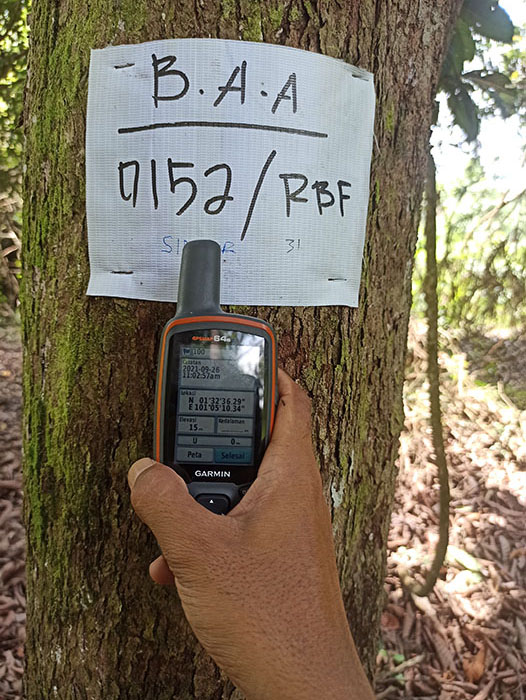 B.A.A
0152/RBF
31
GPSMAP 64s
100
Catatan
2021-09-26
11:02:57am
Lokasi
N 01°32'36.29"
E 101°05'10.34"
Elevasi Kedalaman
15m
U 0m
Peta Selesai
GARMIN